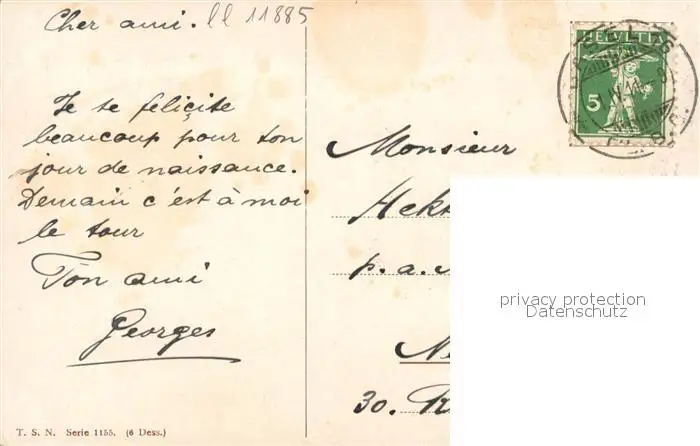 Cher ami. ll 11885
Je te felicite
beaucoup pour ton
jour de naissance.
Demain c'est à moi
le tour
Ton ami
Georges
T. S. N. Serie 1155. (6 Dess.)
HELVETIA
5
Monsieur
Hekt
p. a.
30.
privacy protection
Datenschutz